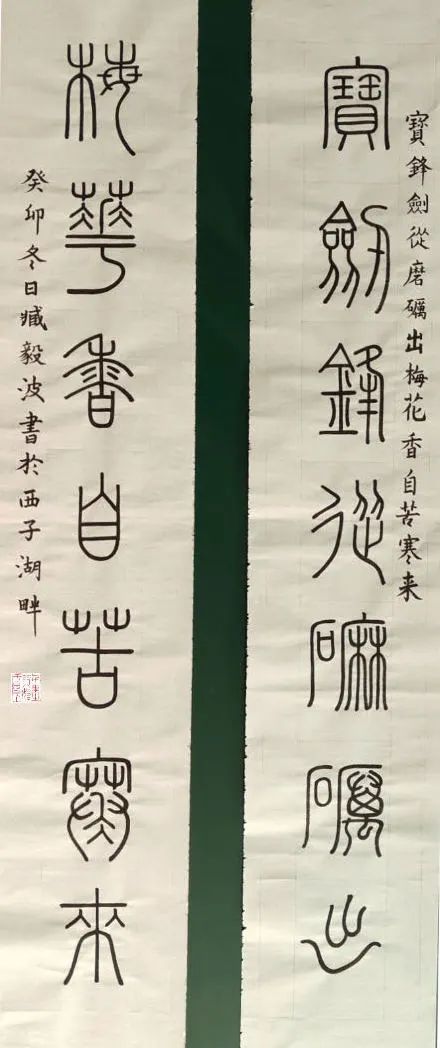 寶鋒劍從磨礪出梅花香自苦寒来
寶劍鋒從磨礪出
梅華香自苦寒來
癸卯冬日臧毅波書於西子湖畔